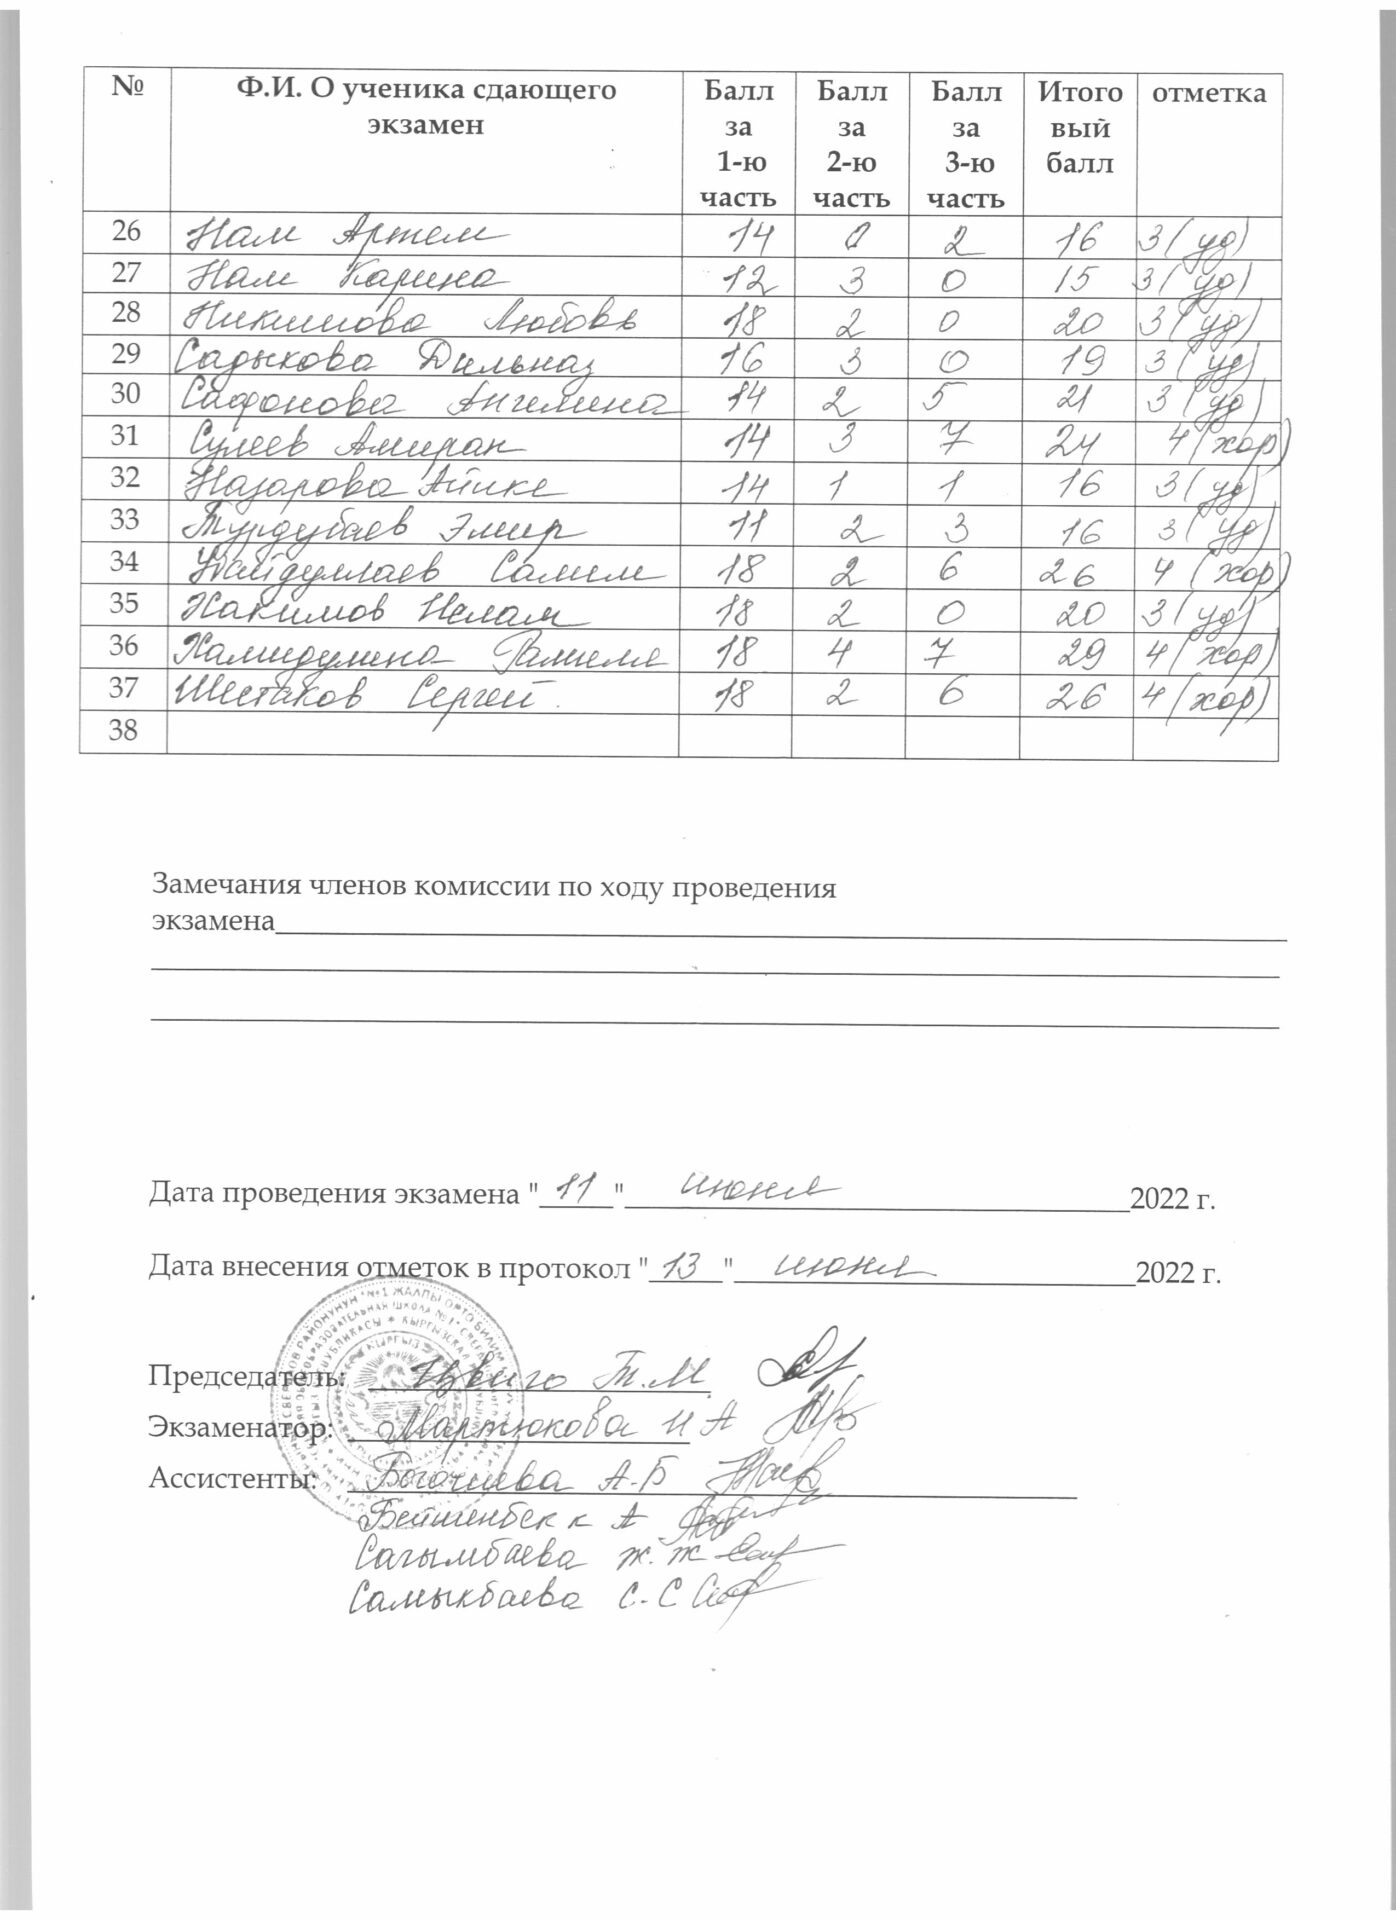 № Ф.И. О ученика сдающего экзамен Балл за 1-ю часть Балл за 2-ю часть Балл за 3-ю часть Итого вый балл отметка
26 Нам Артем 14 0 2 16 3 (уд)
27 Нам Карина 12 3 0 15 3 (уд)
28 Никишова Любовь 18 2 0 20 3 (уд)
29 Садыкова Дильназ 16 3 0 19 3 (уд)
30 Сафонова Ангелина 14 2 5 21 3 (уд)
31 Сулеев Амиран 14 3 7 24 4 (хор)
32 Назарова Айпке 14 1 1 16 3 (уд)
33 Турдубаев Элмир 11 2 3 16 3 (уд)
34 Убайдуллаев Салим 18 2 6 26 4 (хор)
35 Хакимов Ислам 18 2 0 20 3 (уд)
36 Хамидулина Рамиля 18 4 7 29 4 (хор)
37 Шестаков Сергей. 18 2 6 26 4 (хор)
38
Замечания членов комиссии по ходу проведения
экзамена
Дата проведения экзамена "11" июня 2022 г.
Дата внесения отметок в протокол "13" июня 2022 г.
Председатель: Т.М
Экзаменатор: Мартюкова И А
Ассистенты: А.Б
Бейшенбек к А
Сагымбаева Ж.Ж
Самыкбаева С.С